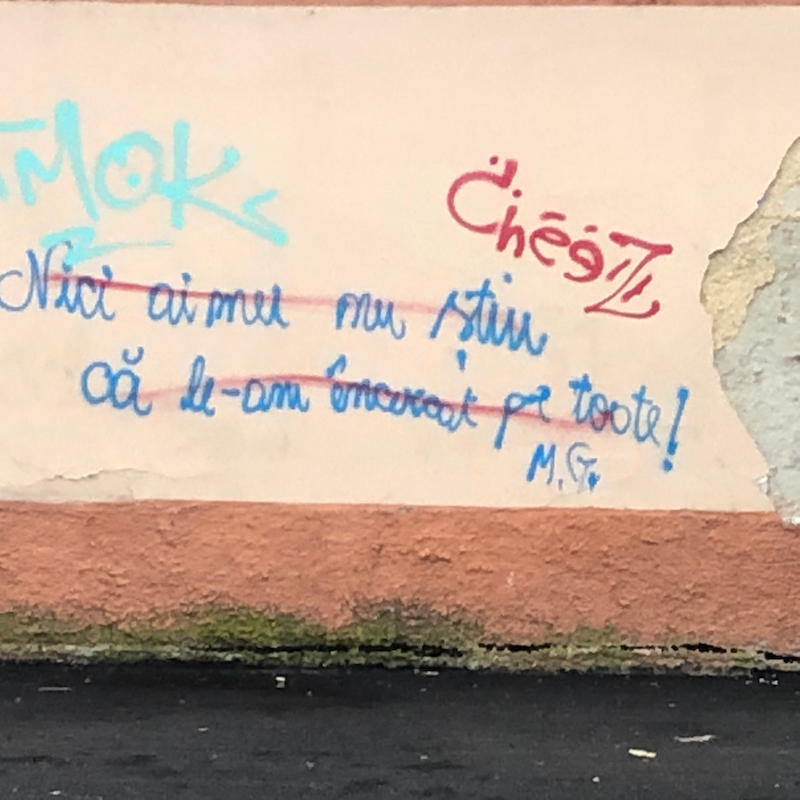 TMOK
CheeZ
Nici aimeu nu știu
că le-am încercat pe toate!
M.G.